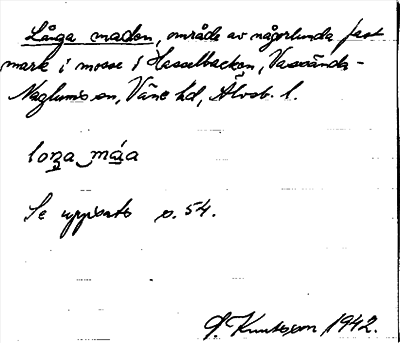 Långa maden, område av någorlunda fast
mark i mosse i Hasselbacken, Vassända-
Naglums sn, Väne hd, Älvsb. l.
Se uppsats s. 54.
Knutsson 1942.